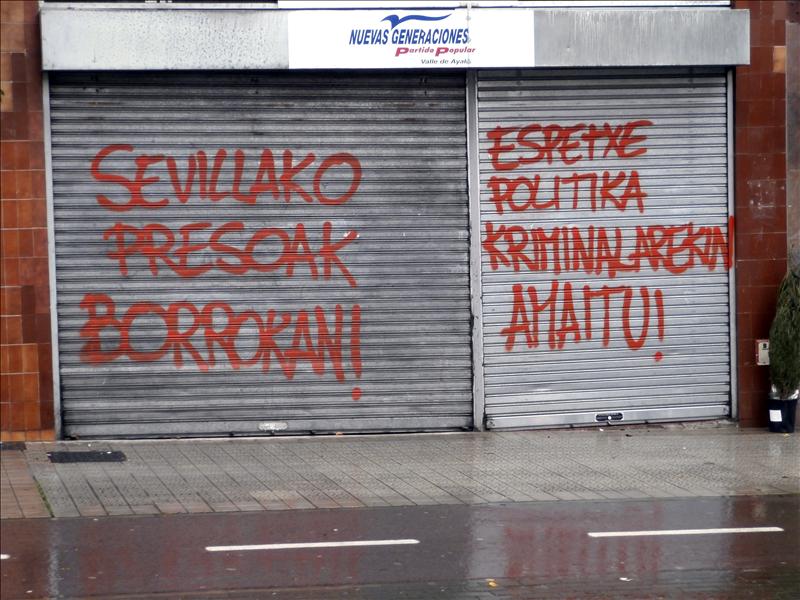 NUEVAS GENERACIONES
Partido Popular
Valle de Ayala
SEVILLAKO
PRESOAK
BORROKAN!
ESPETXE
POLITIKA
KRIMINALAREKIN
AMAITU!